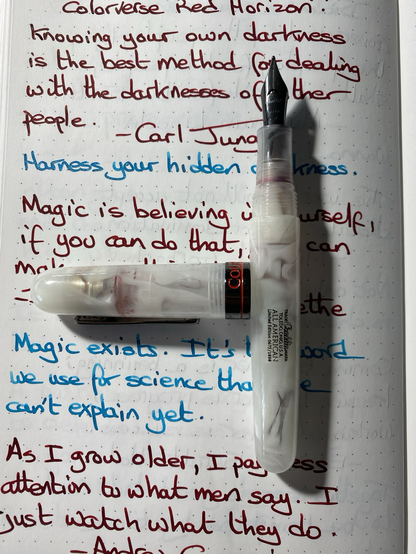 Colorverse Red Horizon.
Knowing your own darkness
is the best method for dealing
with the darknesses of ther
people.
-Carl Jung
Harness your hidden kness.
Magic is believing urself,
if you can do that, can
ethe
Magic exists. It's word
we use for science tha e
can't explain yet.
As I grow older, I pay ess
attention to what men say. I
just watch what they do.
-Andrew
CON
TOLEDO, OHIO, U.S.A.
ALL AMERICAN